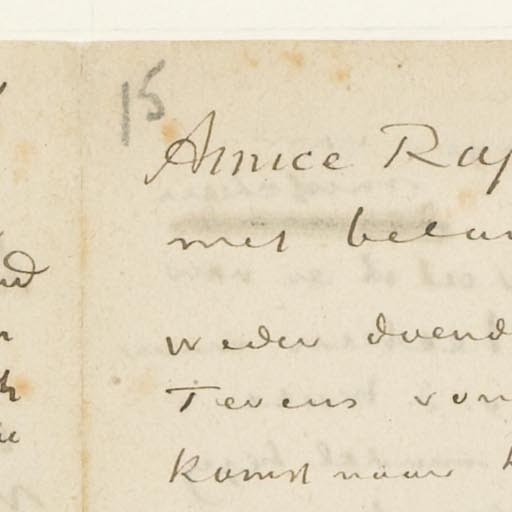 15
Amice Rap
met belan
weder doend
Tevens von
komst naar h